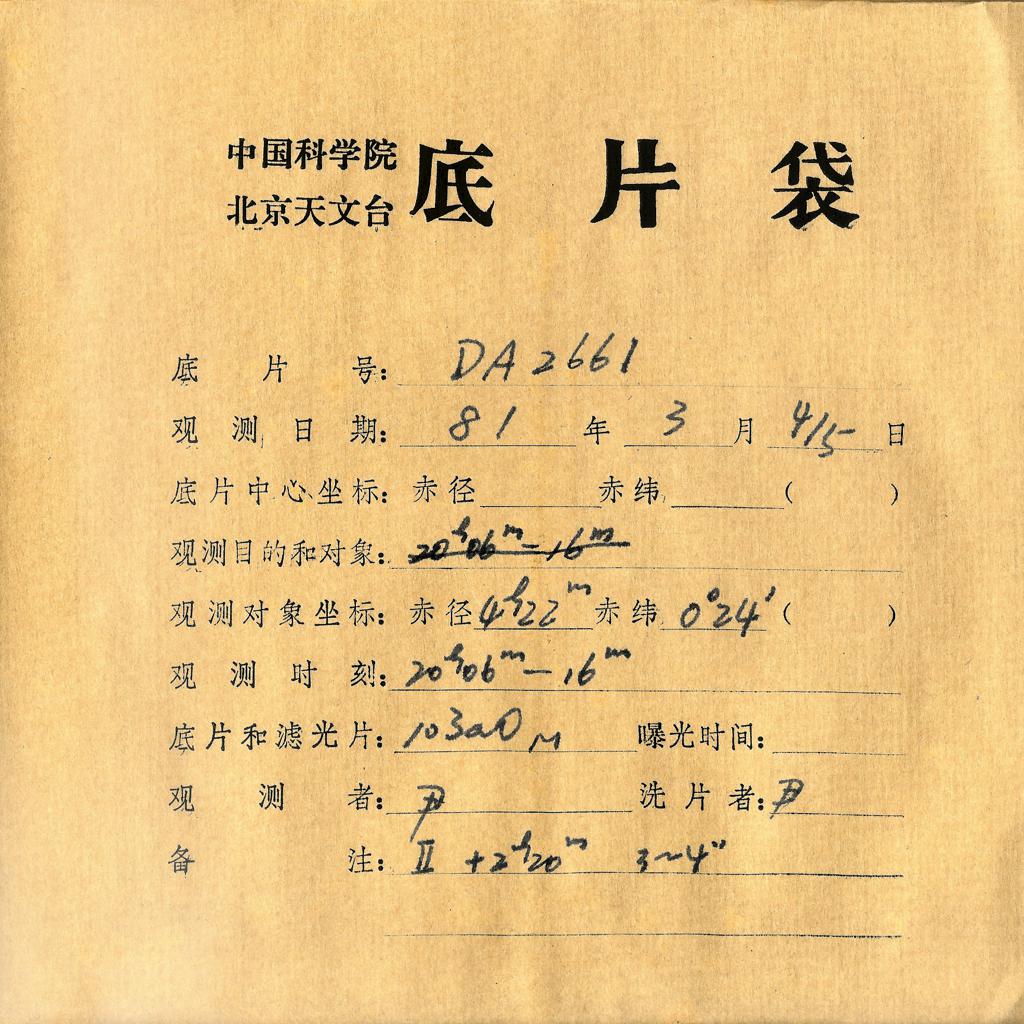 中国科学院
北京天文台
底片袋
底片号: DA 2661
观测日期: 81 年 3 月 4/5 日
底片中心坐标: 赤径 赤纬 ( )
观测目的和对象: 20h06m-16m
观测对象坐标: 赤径 4h22m 赤纬 0°24′ ( )
观测时刻: 20h06m-16m
底片和滤光片: 103aO M 曝光时间:
观测者: 尹 洗片者: 尹
备注: II +2h20m 3~4"